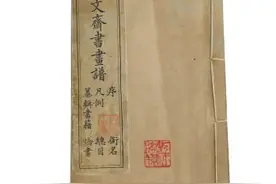 文齋書畫譜
序
凡例
纂輯書籍
銜名
總目
論書